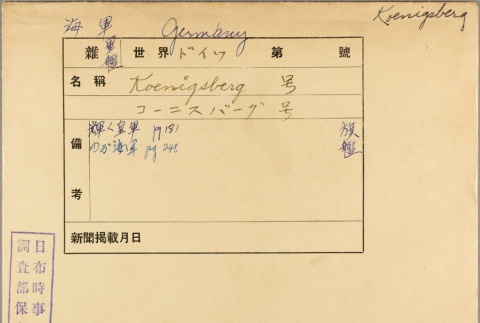 Koenigsberg
海軍
軍艦
Germany
雑 世界 ドイツ 第 號
名稱 Koenigsberg 号
コーニスバーグ 号
備考
輝く皇軍 pg 191
わが海軍 pg 248
旗艦
新聞掲載月日
日布時事
調査部保